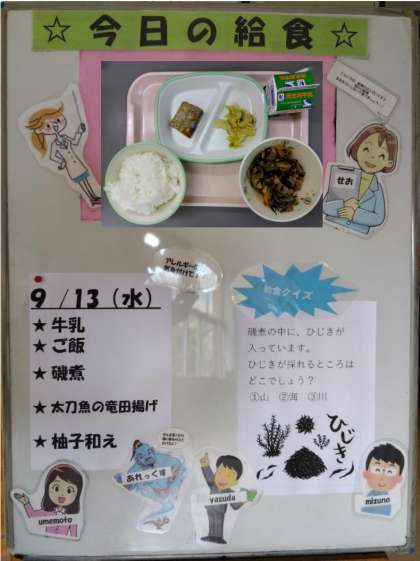 ☆ 今日の給食 ☆
せお
アレルギーに
気を付けて！
9/13（水）
★ 牛乳
★ ご飯
★ 磯煮
★ 太刀魚の竜田揚げ
★ 柚子和え
給食クイズ
磯煮の中に、ひじきが
入っています。
ひじきが採れるところは
どこでしょう？
①山　②海　③川
ひじき
あれっくす
umemoto
yasuda
mizuno